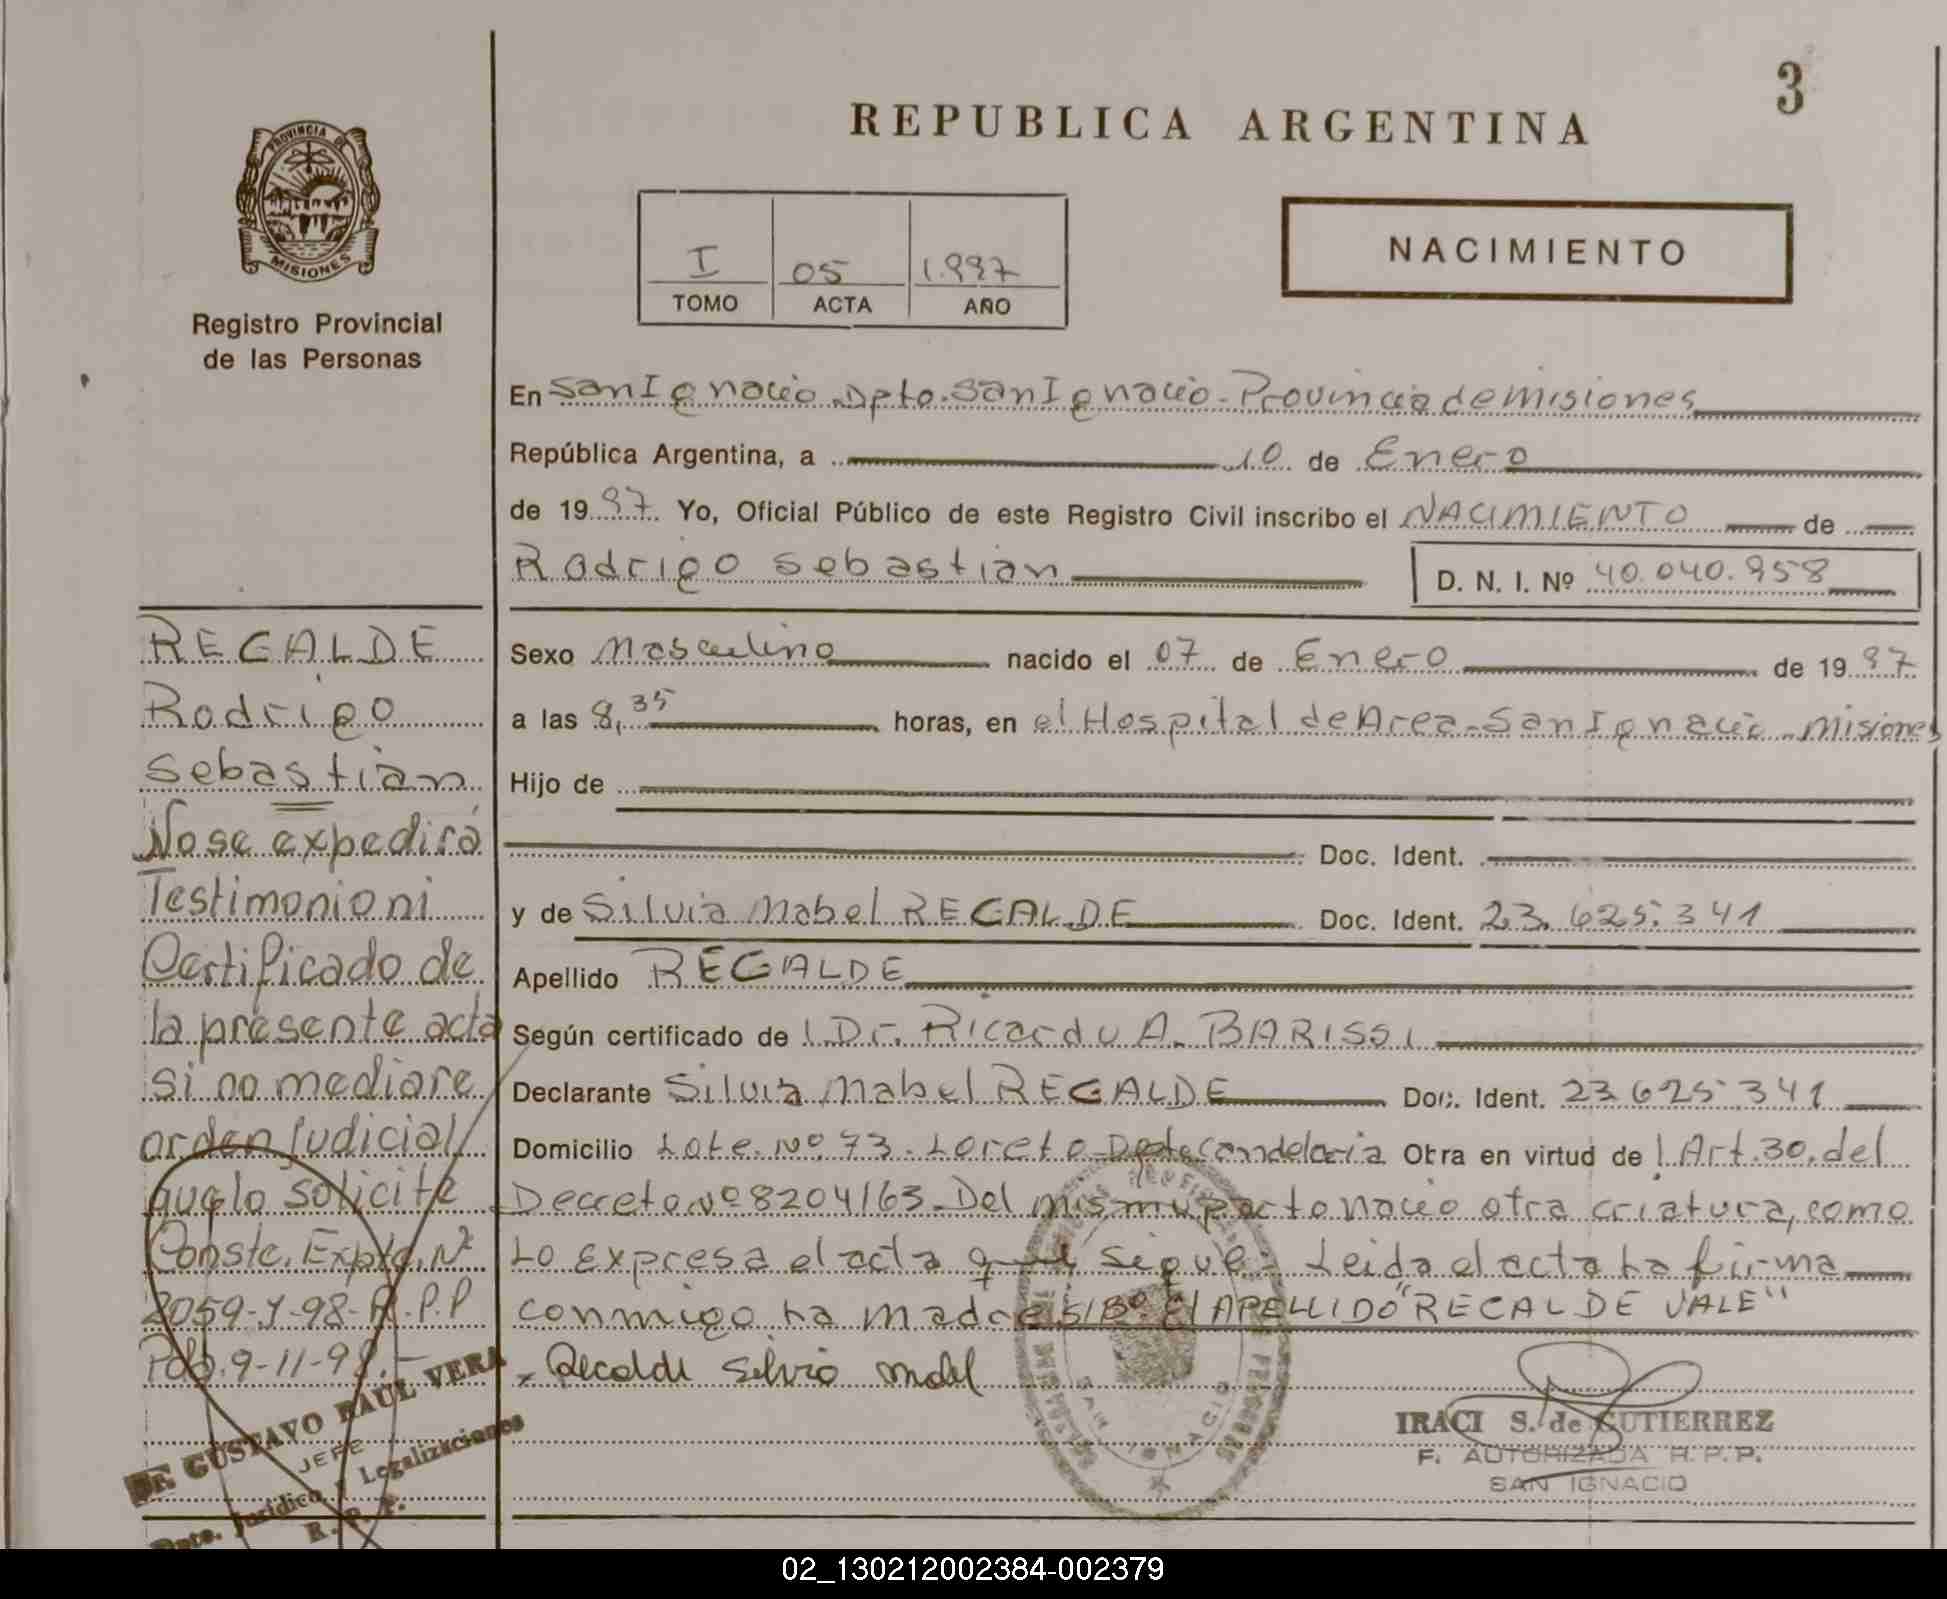 3
REPUBLICA ARGENTINA
PROVINCIA DE
MISIONES
Registro Provincial
de las Personas
I 05 1.997
TOMO ACTA AÑO
NACIMIENTO
En San Ignacio Dpto. San Ignacio - Provincia de Misiones
República Argentina, a 10 de Enero
de 1997 Yo, Oficial Público de este Registro Civil inscribo el NACIMIENTO de
Rodrigo Sebastian D. N. I. Nº 40.040.958
Sexo Masculino nacido el 07 de Enero de 1997
a las 8,35 horas, en el Hospital de Area - San Ignacio - Misiones
Hijo de
Doc. Ident.
y de Silvia Mabel RECALDE Doc. Ident. 23.625.341
Apellido RECALDE
Según certificado de l Dr. Ricardo A. BARISSI
Declarante Silvia Mabel RECALDE Doc. Ident. 23.625.341
Domicilio Lote Nº 73 - Loreto - Dpto Candelaria Obra en virtud de l Art. 30. del
Decreto Nº 8204/63 - Del mismo parto nacio otra criatura, como
Lo expresa el acta que sigue - Leida el acta La firma
conmigo La madre S/Bº: El APELLIDO "RECALDE VALE"
Recalde Silvia Mabel
IRACI S. de GUTIERREZ
F. AUTORIZADA R. P. P.
SAN IGNACIO
SAN IGNACIO
REGALDE
Rodrigo
Sebastian
No se expedirá
Testimonio ni
Certificado de
la presente acta
si no mediare
orden Judicial
que lo solicite
Conste. Expte. Nº
2059-Y-98-R.P.P
Pdas. 9-11-98.-
GUSTAVO RAUL VERA
JEFE
Dpto. Jurídico y Legalizaciones
R. P. P.
02_130212002384-002379